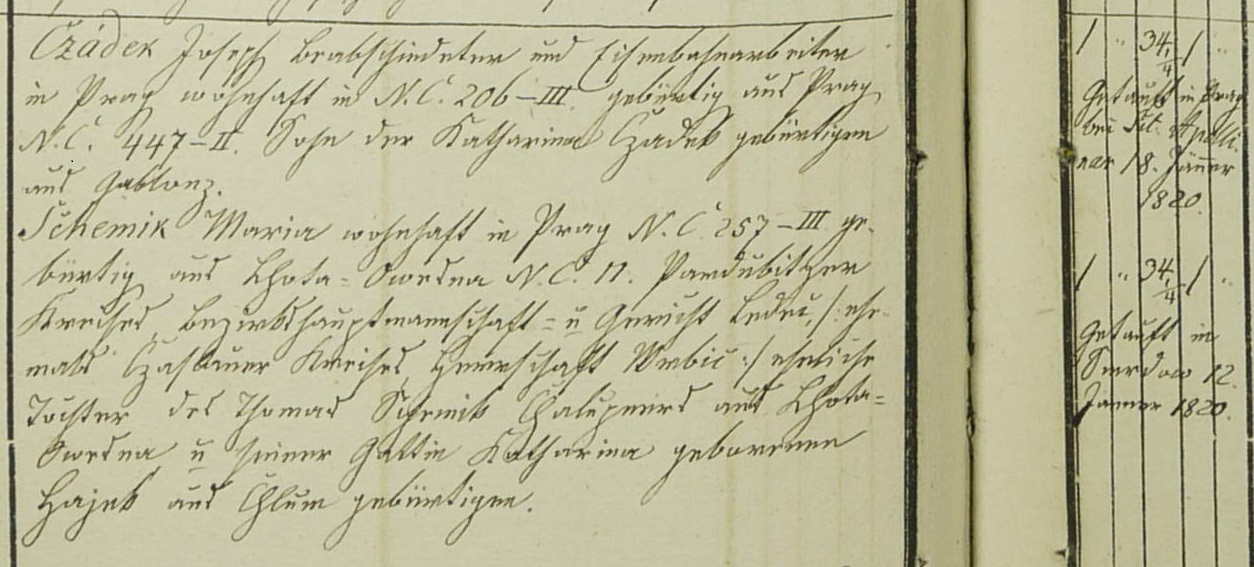 Czádek Joseph Beabschiedeter und Eisenbahnarbeiter
in Prag wohnhaft in N.C. 206–III. gebürtig aus Prag
N.C. 447–II. Sohn der Katharina Czadek gebürtigen
aus Gablonz.
Schemik Maria wohnhaft in Prag N.C. 257–III ge-
bürtig aus Lhota-Owesna N.C. 11. Pardubitzer
Kreises, Bezirkshauptmannschaft- u Gericht Ledeč, /: ehe-
mals Czaslauer Kreises, Herrschaft Wrbic :/ eheliche
Tochter des Thomas Schemik Chalupners aus Lhota-
Owesna u seiner Gattin Katharina geborenen
Hajek aus Chlum gebürtigen.
1 " 34 1/4 / "
Getauft in Prag
bei Sct. Apolli
nar 18. Jänner
1820.
1 " 34 1/4 / "
Getauft in
12.
Jänner 1820.